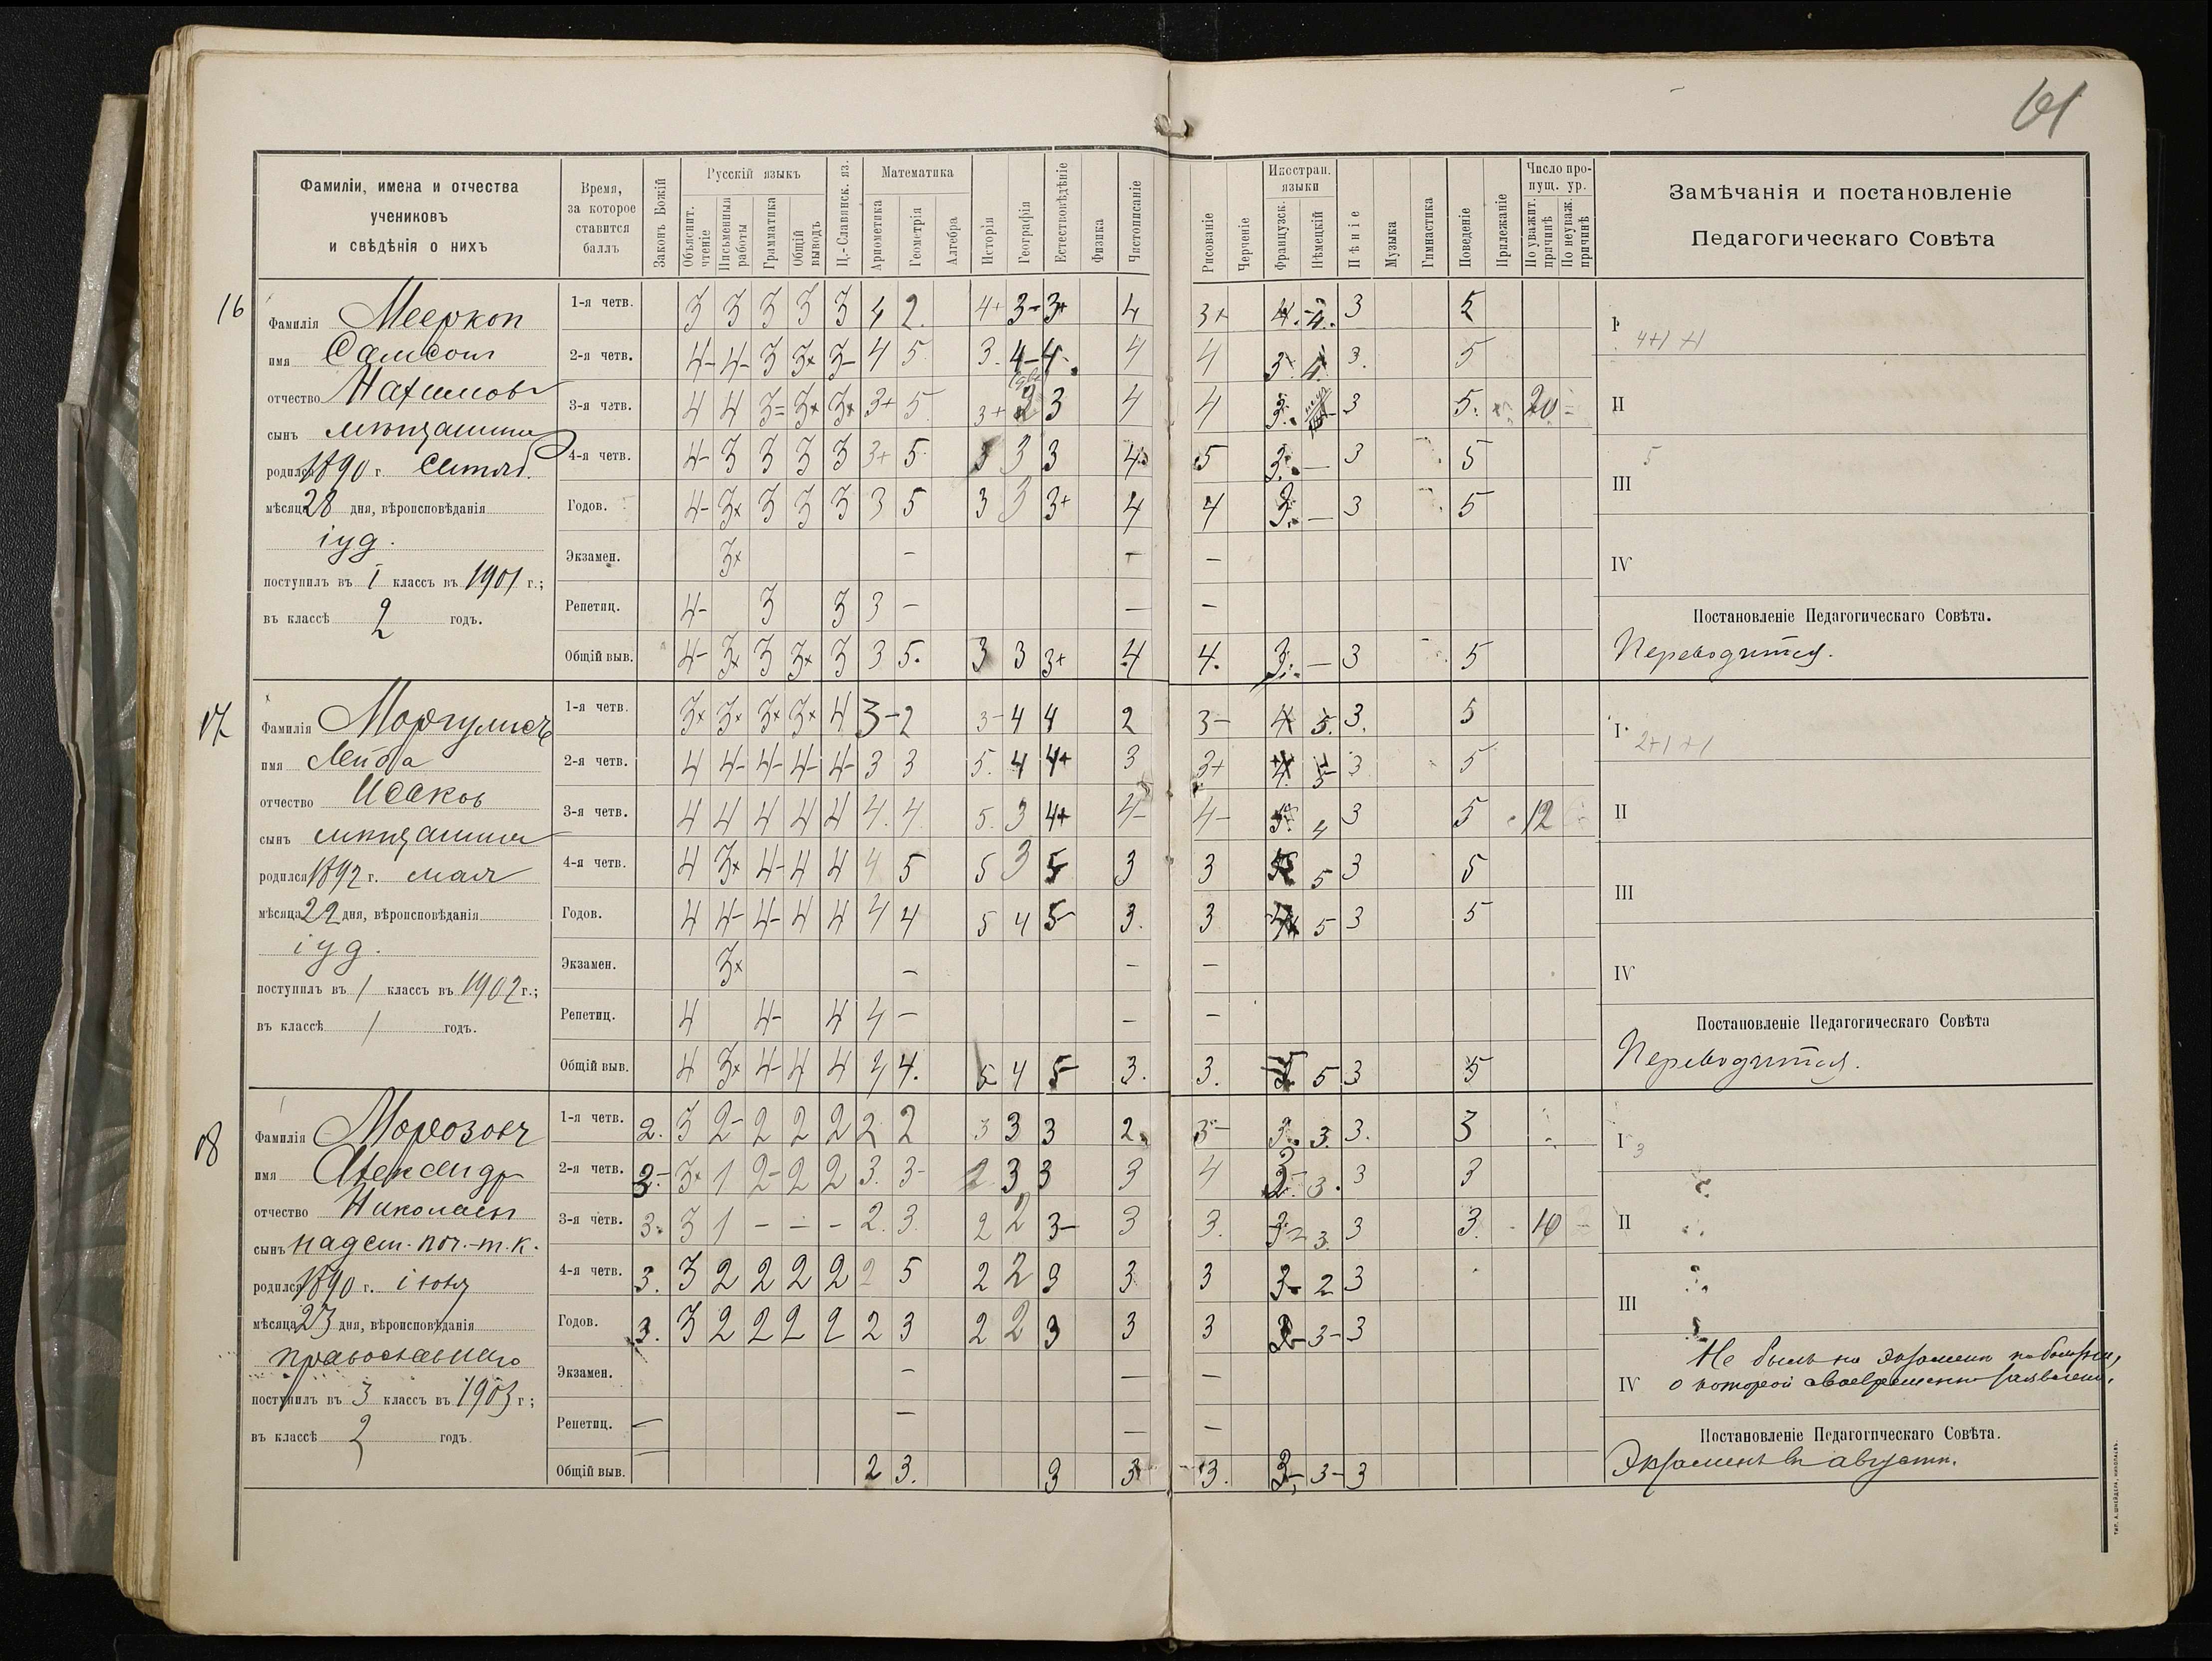 61
Фамиліи, имена и отчества
учениковъ
и свѣдѣнія о нихъ
Время,
за которое
ставится
баллъ
Законъ Божій
Русскій языкъ
Объяснит. чтеніе
Письменныя работы
Грамматика
Общій выводъ
Ц.-Славянск. яз.
Математика
Ариѳметика
Геометрія
Алгебра
Исторія
Географія
Естествовѣдѣніе
Физика
Чистописаніе
Рисованіе
Черченіе
Иностран. языки
Французск.
Нѣмецкій
Пѣніе
Музыка
Гимнастика
Поведеніе
Прилежаніе
Число пропущ. ур.
По уважит. причинѣ
По неуваж. причинѣ
Замѣчанія и постановленіе
Педагогическаго Совѣта
16
Фамилія Мееркоп
имя Самсон
отчество Нахимов
сынъ мѣщанина
родился 1890 г. Сентяб.
мѣсяца 28 дня, вѣроисповѣданія
іуд.
поступилъ въ I классъ въ 1901 г.;
въ классѣ 2 годъ.
1-я четв. 3 3 3 3 3 4 2. 4+ 3- 3+ 4 3+ 4.- 4. 3 5
2-я четв. 4- 4- 3 3+ 3- 4 5 3. 4- 4- 4 4 3. 4. 3. 5
3-я четв. 4 4 3= 3+ 3+ 3+ 5 3+ 2 3 4 4 3. 3 5. 20
4-я четв. 4- 3 3 3 3 3+ 5 3 3 3 4 5 3. — 3 5
Годов. 4- 3+ 3 3 3 3 5 3 3 3+ 4 4 3. — 3 5
Экзамен. 3+ — — —
Репетиц. 4- 3 3 3 — — —
Общій выв. 4- 3+ 3 3+ 3 3 5. 3 3 3+ 4 4. 3. — 3 5
I 4+1 +1
II
III 5
IV
Постановленіе Педагогическаго Совѣта.
Переводится.
17
Фамилія Моргулисъ
имя Лейба
отчество Исаков
сынъ мѣщанина
родился 1892 г. мая
мѣсяца 22 дня, вѣроисповѣданія
іуд.
поступилъ въ 1 классъ въ 1902 г.;
въ классѣ 1 годъ.
1-я четв. 3+ 3+ 3+ 3+ 4 3- 2 3- 4 4 2 3- 4 5. 3. 5
2-я четв. 4 4- 4- 4- 4- 3 3 5. 4 4+ 3 3+ 4 5 3 5
3-я четв. 4 4 4 4 4 4. 4 5. 3 4+ 4- 4- 5. 4 3 5 12
4-я четв. 4 3+ 4- 4 4 4 5 5 3 5 3 3 5 3 5
Годов. 4 4- 4- 4 4 4 4 5 4 5- 3. 3 5 3 5
Экзамен. 3+ — — —
Репетиц. 4 4- 4 4 — — —
Общій выв. 4 3+ 4- 4 4 4 4. 5 4 5- 3. 3. 5 3 5
I 2+1 +1
II
III
IV
Постановленіе Педагогическаго Совѣта
Переводится.
18
Фамилія Морозовъ
имя Александр
отчество Николаев
сынъ надсм. поч.-т. к.
родился 1890 г. іюня
мѣсяца 23 дня, вѣроисповѣданія
православнаго
поступилъ въ 3 классъ въ 1903 г;
въ классѣ 2 годъ
1-я четв. 2. 3 2- 2 2 2 2 2 3 3 3 2. 3- 3. 3. 3. 3
2-я четв. 3+ 1 2- 2 2 3. 3- 2 3 3 3 4 3. 3 3
3-я четв. 3. 3 1 — — — 2. 3. 2 2 3- 3 3. 3 3. 3 3. 10
4-я четв. 3. 3 2 2 2 2 2 5 2 2 3 3 3 3- 2 3
Годов. 3. 3 2 2 2 2 2 3 2 2 3 3 3 3- 3
Экзамен. — — —
Репетиц. — — — —
Общій выв. — 2 3. 3 3 3. 3- 3- 3
I 3
II
III
IV Не былъ на экзамене по болѣзни,
о которой своевременно заявлено.
Постановленіе Педагогическаго Совѣта.
Экзаменъ въ августѣ.
ТИП. А. ШНЕЙДЕРА, НИКОЛАЕВЪ.